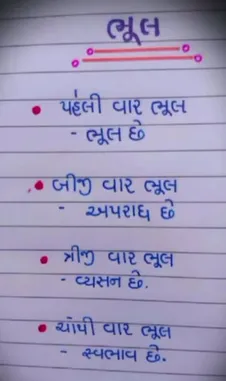 ભૂલ
પહેલી વાર ભૂલ
- ભૂલ છે
બીજી વાર ભૂલ
- અપરાધ છે
ત્રીજી વાર ભૂલ
- વ્યસન છે.
ચોથી વાર ભૂલ
- સ્વભાવ છે.